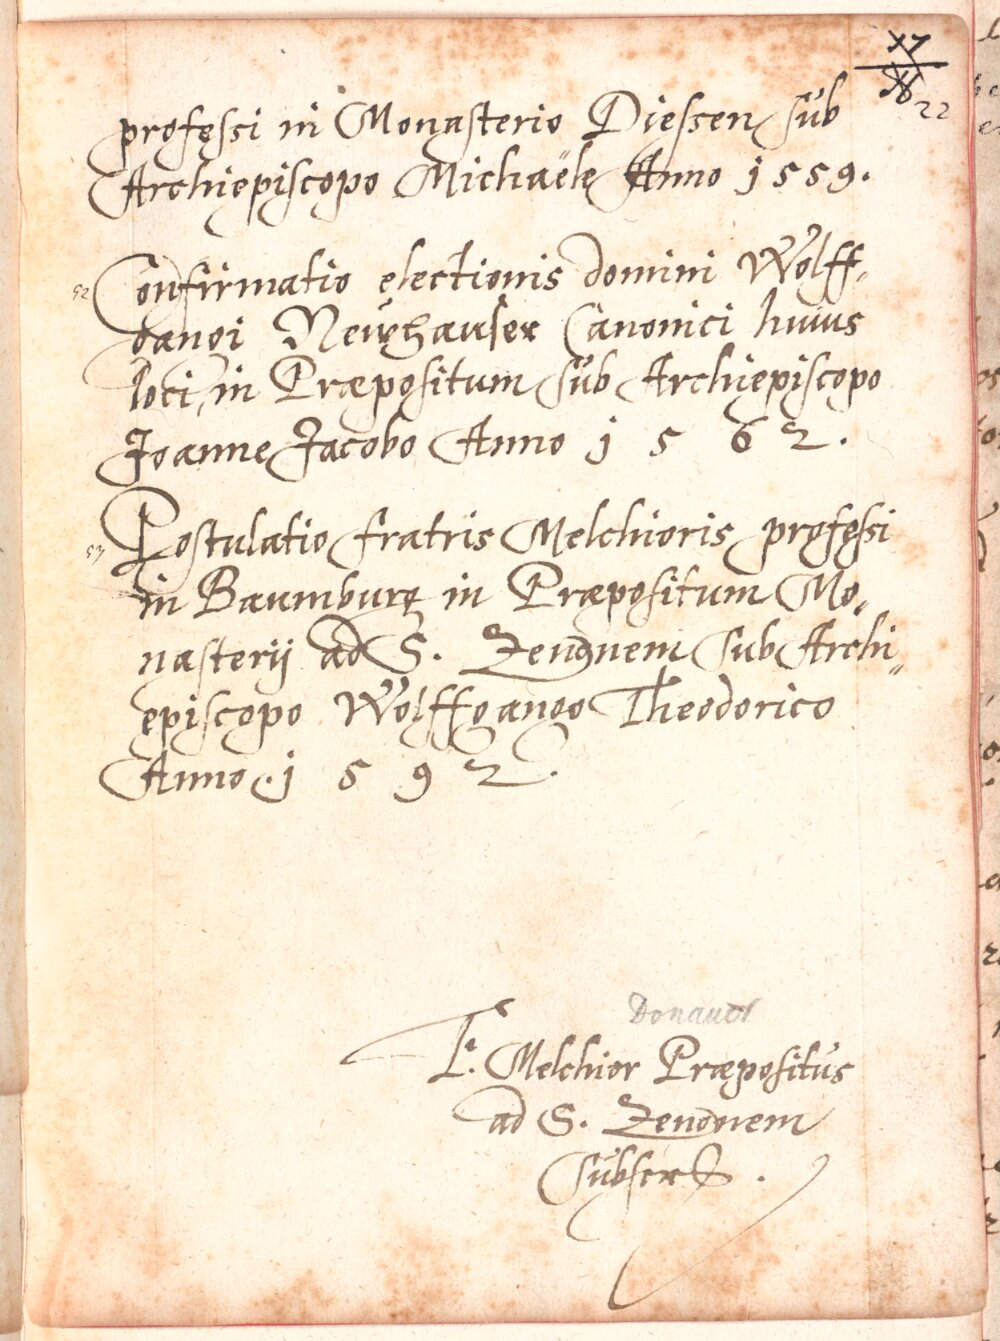 17
22
professi in Monasterio Diessen sub
Archiepiscopo Michaële Anno 1559.
52 Confirmatio electionis domini Wolff„
gangi Neuhauser Canonici huius
loci in Præpositum sub Archiepiscopo
Joanne Jacobo Anno 1562.
53 Postulatio fratris Melchioris professi
in Baumburg in Præpositum Mo„
nasterij ad S. Zenonem sub Archi„
episcopo Wolffgango Theodorico
Anno .1592.
Donauer
F. Melchior Præpositus
ad S. Zenonem
subscrs.